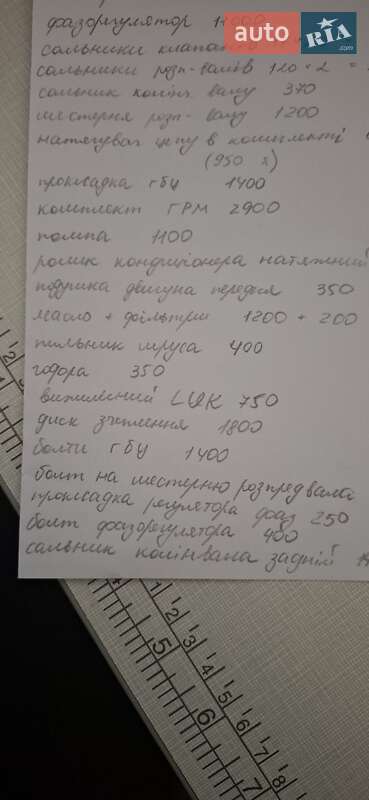 фазорегулятор 11000
auto RIA.com
сальники клапанів
сальники розп-валів 120 x 2 =
сальник колін. валу 370
шестерня розп-валу 1200
натягувач цепу в комплекті
(950 x)
прокладка гбц 1400
комплект ГРМ 2900
помпа 1100
ролик кондиціонера натяжний
подушка двигуна передня 350
масло + фільтри 1200 + 200
пильник шруса 400
гофра 350
вижимний LUK 750
диск зчеплення 1800
болти гбц 1400
болт на шестерню розпредвала
прокладка регулятора фаз 250
болт фазорегулятора 400
сальник колінвала задній
2
3
4
1
5
2
3
4
5
6
6
7
7
8